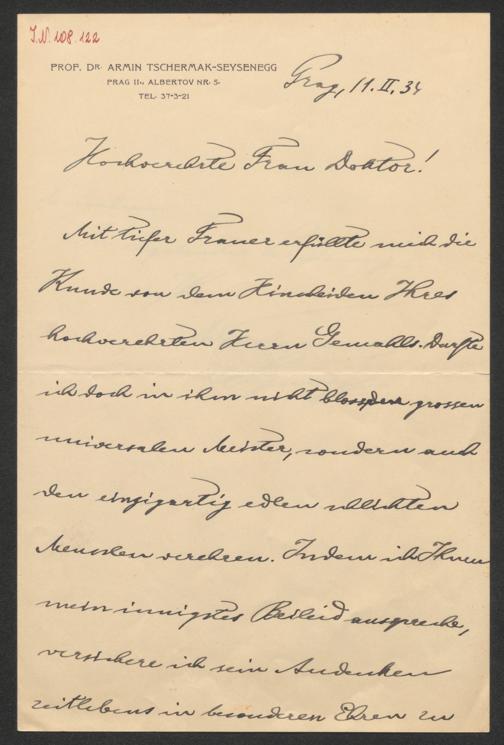 I.N. 108.122
PROF. DR. ARMIN TSCHERMAK-SEYSENEGG
PRAG II., ALBERTOV NR. 5.
TEL. 37-3-21
Prag, 11. II. 34
Hochverehrte Frau Doktor!
Mit tiefer Trauer erfüllte mich die
Kunde von dem Hinscheiden Ihres
hochverehrten Herrn Gemahls. Durfte
ich doch in ihm nicht bloss den grossen
universalen Meister, sondern auch
den einzigartig edlen schlichten
Menschen verehren. Indem ich Ihnen
mein innigstes Beileid ausspreche,
versichere ich sein Andenken
zeitlebens in besonderen Ehren zu